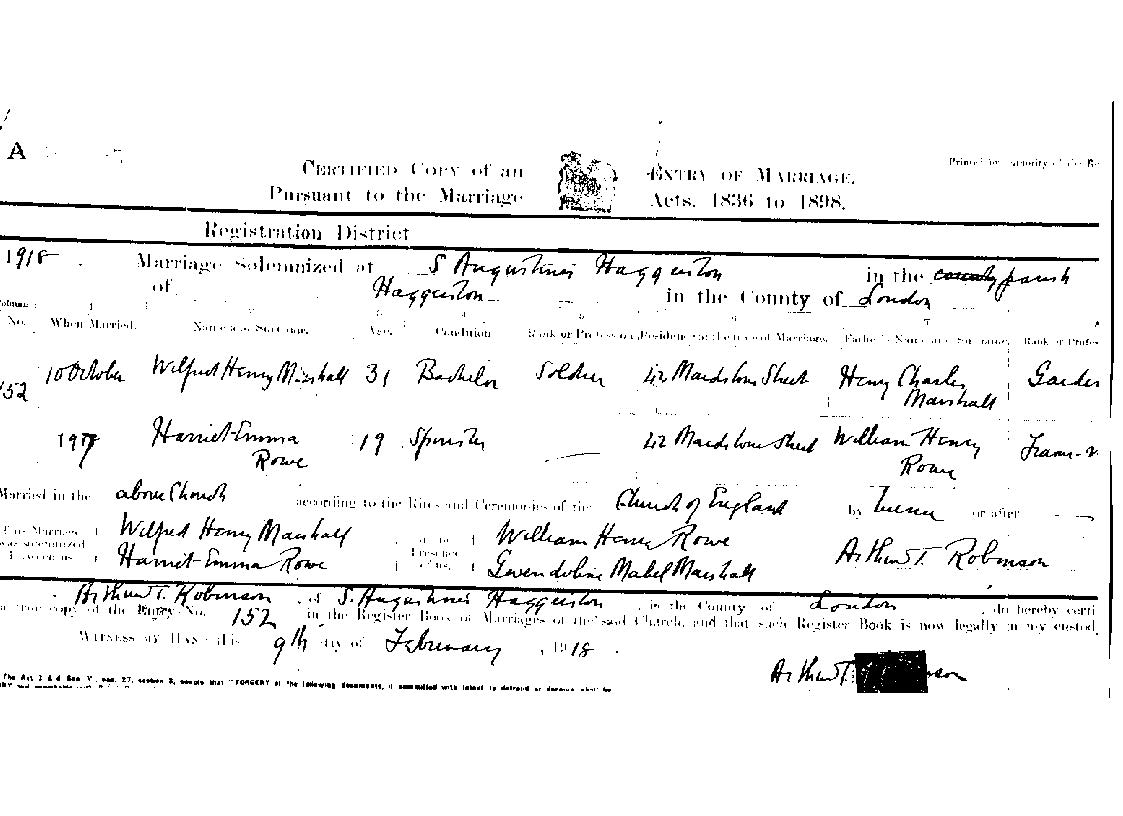 A
Printed by authority of the Re
CERTIFIED COPY of an ENTRY OF MARRIAGE.
Pursuant to the Marriage Acts. 1836 to 1898.
Registration District
1918. Marriage Solemnized at S Augustines Haggerston in the county parish
of Haggerston in the County of London
No. When Married. Name and Surname. Age. Condition Rank or Profession Residence at the time of Marriage. Father's Name and Surname. Rank or Profes
152 10 October Wilfred Henry Marshall 31 Bachelor Soldier 42 Maidstone Street Henry Charles Marshall
1917 Harriet Emma Rowe 19 Spinster 42 Maidstone Street William Henry Rowe
Married in the above Church according to the Rites and Ceremonies of the Church of England by or after
This Marriage was solemnized between us Wilfred Henry Marshall in the Presence of us, William Henry Rowe
Harriet Emma Rowe Gwendoline Mabel Marshall Arthur T. Robinson
Arthur T. Robinson of S. Augustines Haggerston, in the County of London, do hereby certi
a true copy of the Entry No. 152 in the Register Book of Marriages of the said Church, and that such Register Book is now legally in my custod
WITNESS MY HAND this 9th day of February, 1918.
Arthur T son
The Act section 3, "FORGERY of the following documents, if committed with intent to defraud or deceive shall be